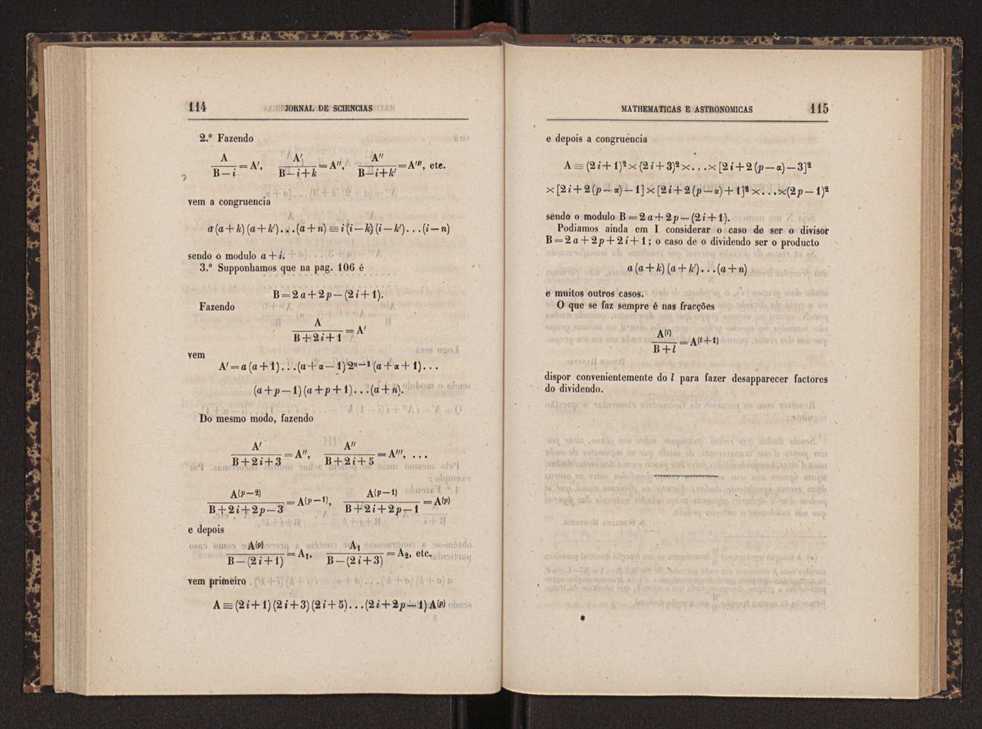 114 JORNAL DE SCIENCIAS
2.º Fazendo
A/(B−i) = A′, A′/(B−i+k) = A″, A″/(B−i+k′) = A‴, etc.
vem a congruencia
a(a+k)(a+k′)...(a+n) ≡ i(i−k)(i−k′)...(i−n)
sendo o modulo a+i.
3.º Supponhamos que na pag. 106 é
B=2a+2p−(2i+1).
Fazendo
A/(B+2i+1) = A′
vem
A′=a(a+1)...(a+α−1)2ⁿ⁻¹(a+α+1)...
(a+p−1)(a+p+1)...(a+n).
Do mesmo modo, fazendo
A′/(B+2i+3) = A″, A″/(B+2i+5) = A‴, ...
A^(p−2)/(B+2i+2p−3) = A^(p−1), A^(p−1)/(B+2i+2p−1) = A^(p)
e depois
A^(p)/(B−(2i+1)) = A₁, A₁/(B−(2i+3)) = A₂, etc.
vem primeiro
A≡(2i+1)(2i+3)(2i+5)...(2i+2p−1)A^(p)
MATHEMATICAS E ASTRONOMICAS 115
e depois a congruencia
A≡(2i+1)²×(2i+3)²×...×[2i+2(p−α)−3]²
×[2i+2(p−α)−1]×[2i+2(p−α)+1]²×...×(2p−1)²
sendo o modulo B=2a+2p−(2i+1).
Podiamos ainda em I considerar o caso de ser o divisor
B=2a+2p+2i+1; o caso de o dividendo ser o producto
a(a+k)(a+k′)...(a+n)
e muitos outros casos.
O que se faz sempre é nas fracções
A^(l)/(B+l) = A^(l+1)
dispor convenientemente do l para fazer desapparecer factores
do dividendo.